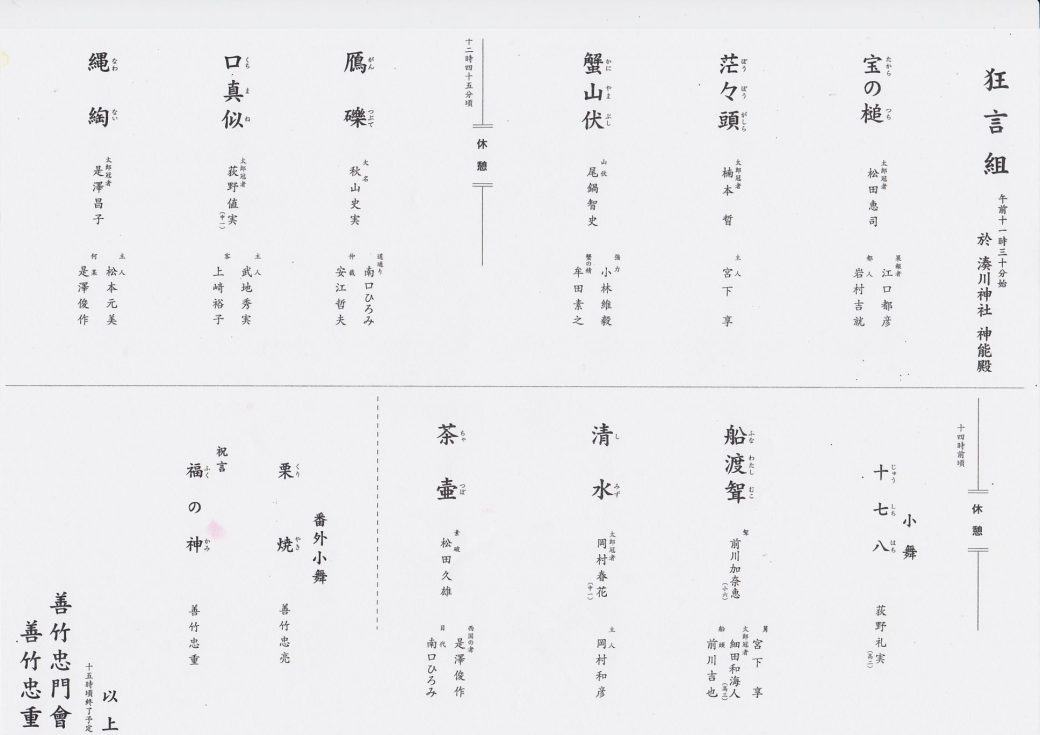 狂言組
午前十一時三十分始
於 湊川神社 神能殿
宝の槌
たから つち
太郎冠者
松田惠司
果報者
江口都彦
都人
岩村吉就
茫々頭
ぼう ぼう がしら
太郎冠者
楠本 哲
主人
宮下 享
蟹山伏
かに やま ぶし
山伏
尾鍋智史
強力
小林維毅
蟹の精
牟田素之
十二時四十五分頃
休憩
鴈礫
がん つぶて
大名
秋山史実
道通り
南口ひろみ
仲裁
安江哲夫
口真似
くち ま ね
太郎冠者
荻野値実(中一)
主人
武地秀実
客
上﨑裕子
縄綯
なわ ない
太郎冠者
是澤昌子
主人
松本元美
何某
是澤俊作
十四時前頃
休憩
小舞
十七八
じゅう しち はち
荻野礼実(高二)
船渡聟
ふな わたし むこ
聟
前川加奈惠(小六)
舅
宮下 享
太郎冠者
細田和海人(高三)
船頭
前川吉也
清水
し みず
太郎冠者
岡村春花(中一)
主人
岡村和彦
茶壷
ちゃ つぼ
素破
松田久雄
西国の者
是澤俊作
目代
南口ひろみ
番外小舞
栗焼
くり やき
善竹忠亮
祝言
福の神
ふく かみ
善竹忠重
以上
十五時頃終了予定
善竹忠門會
善竹忠重